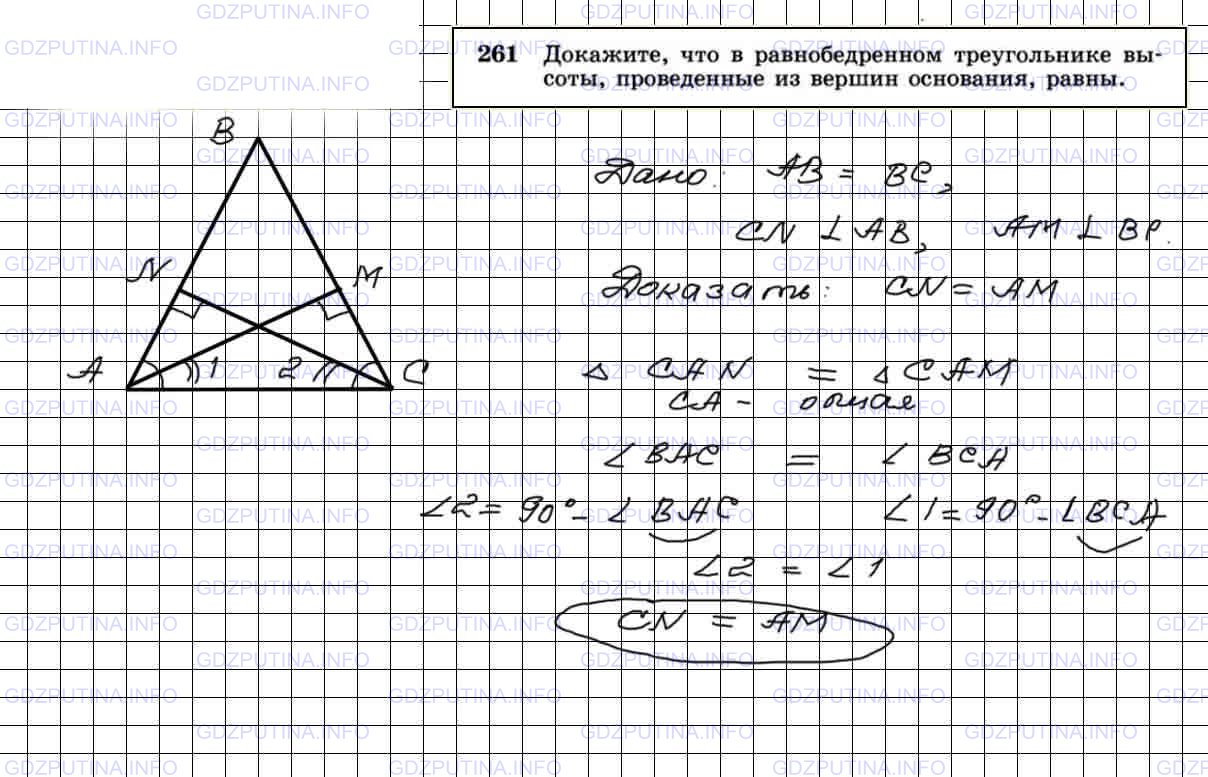 261 Докажите, что в равнобедренном треугольнике вы-
соты, проведенные из вершин основания, равны.
B
N
M
A
1
2
C
Дано: AB = BC,
CN ⊥ AB, AM ⊥ BC.
Доказать: CN = AM
△ CAN = △ CAM
CA - общая
∠ BAC = ∠ BCA
∠2 = 90° - ∠ BAC ∠1 = 90° - ∠BCA
∠2 = ∠1
CN = AM
GDZPUTINA.INFO